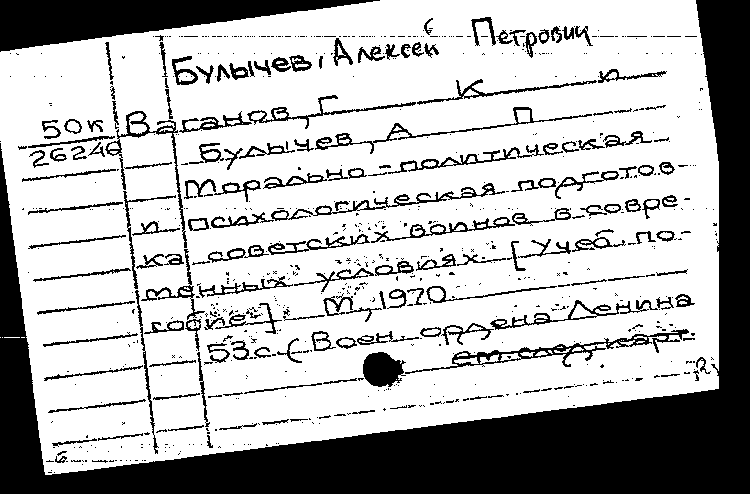 Булычев, Алексей Петрович
50к Ваганов, Г К и
26246 Булычев, А П
Морально-политическая
и психологическая подготов-
ка советских воинов в совре-
менных условиях. [Учеб. по-
собие] М, 1970.
53с (Воен. ордена Ленина
см. след. карт.